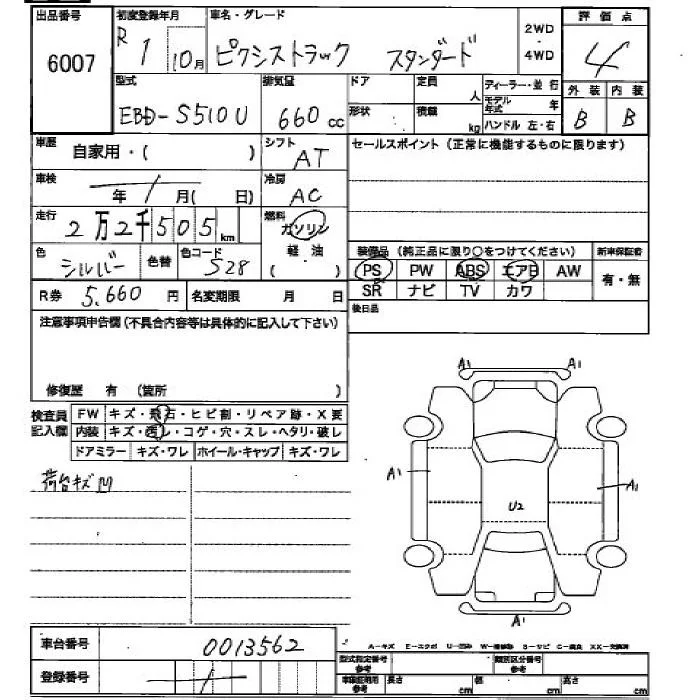 出品番号 初度登録年月 車名・グレード 2WD・4WD 評価点
6007 R 1 10月 ピクシストラック スタンダード 4
型式 排気量 ドア 定員 人 ディーラー・並行 外装 内装
EBD-S510U 660 cc 形状 積載 kg モデル年式 年 B B
ハンドル 左・右
車歴 自家用・( ) シフト AT セールスポイント(正常に機能するものに限ります)
車検 年 月( 日) 冷房 AC
走行 2万2千505km 燃料 ガソリン
軽・油
( )
装備品(純正品に限り○をつけてください) 新車保証書
色 シルバー 色替 色コード S28 PS PW ABS エアB AW 有・無
SR ナビ TV カワ
R券 5.660 円 名変期限 月 日 後日品
注意事項申告欄(不具合内容等は具体的に記入して下さい)
修復歴 有 (箇所 )
検査員記入欄 FW キズ・飛石・ヒビ割・リペア跡・X要
内装 キズ・汚レ・コゲ・穴・スレ・ヘタリ・破レ
ドアミラー キズ・ワレ ホイール・キャップ キズ・ワレ
荷台キズ凹
A1 A1
A1 U2 A1
A1
車台番号 0013562
A-キズ E-エクボ U-凹み W-補修跡 S-サビ C-腐食 XX-交換済
登録番号
型式指定番号 参考 類別区分番号 参考
車庫証明用 参考 長さ cm 幅 cm 高さ cm